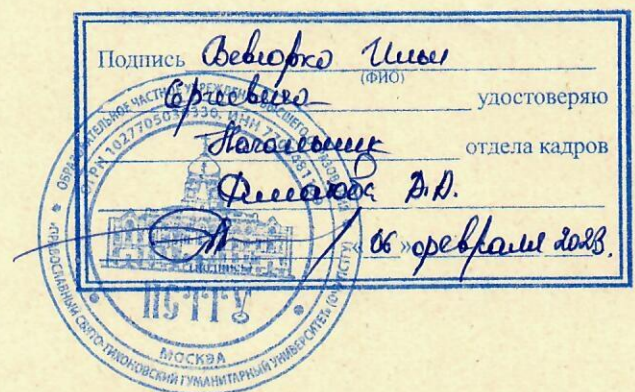 Подпись Вевюрко Ильи
(ФИО)
Сергеевича удостоверяю
Начальник отдела кадров
Д.А.
«06» февраля 2023.
ОБРАЗОВАТЕЛЬНОЕ ЧАСТНОЕ УЧРЕЖДЕНИЕ ВЫСШЕГО ОБРАЗОВАНИЯ
ПРАВОСЛАВНЫЙ СВЯТО-ТИХОНОВСКИЙ ГУМАНИТАРНЫЙ УНИВЕРСИТЕТ (ОЧУ ПСТГУ)
ОГРН ИНН
ПСТГУ
МОСКВА